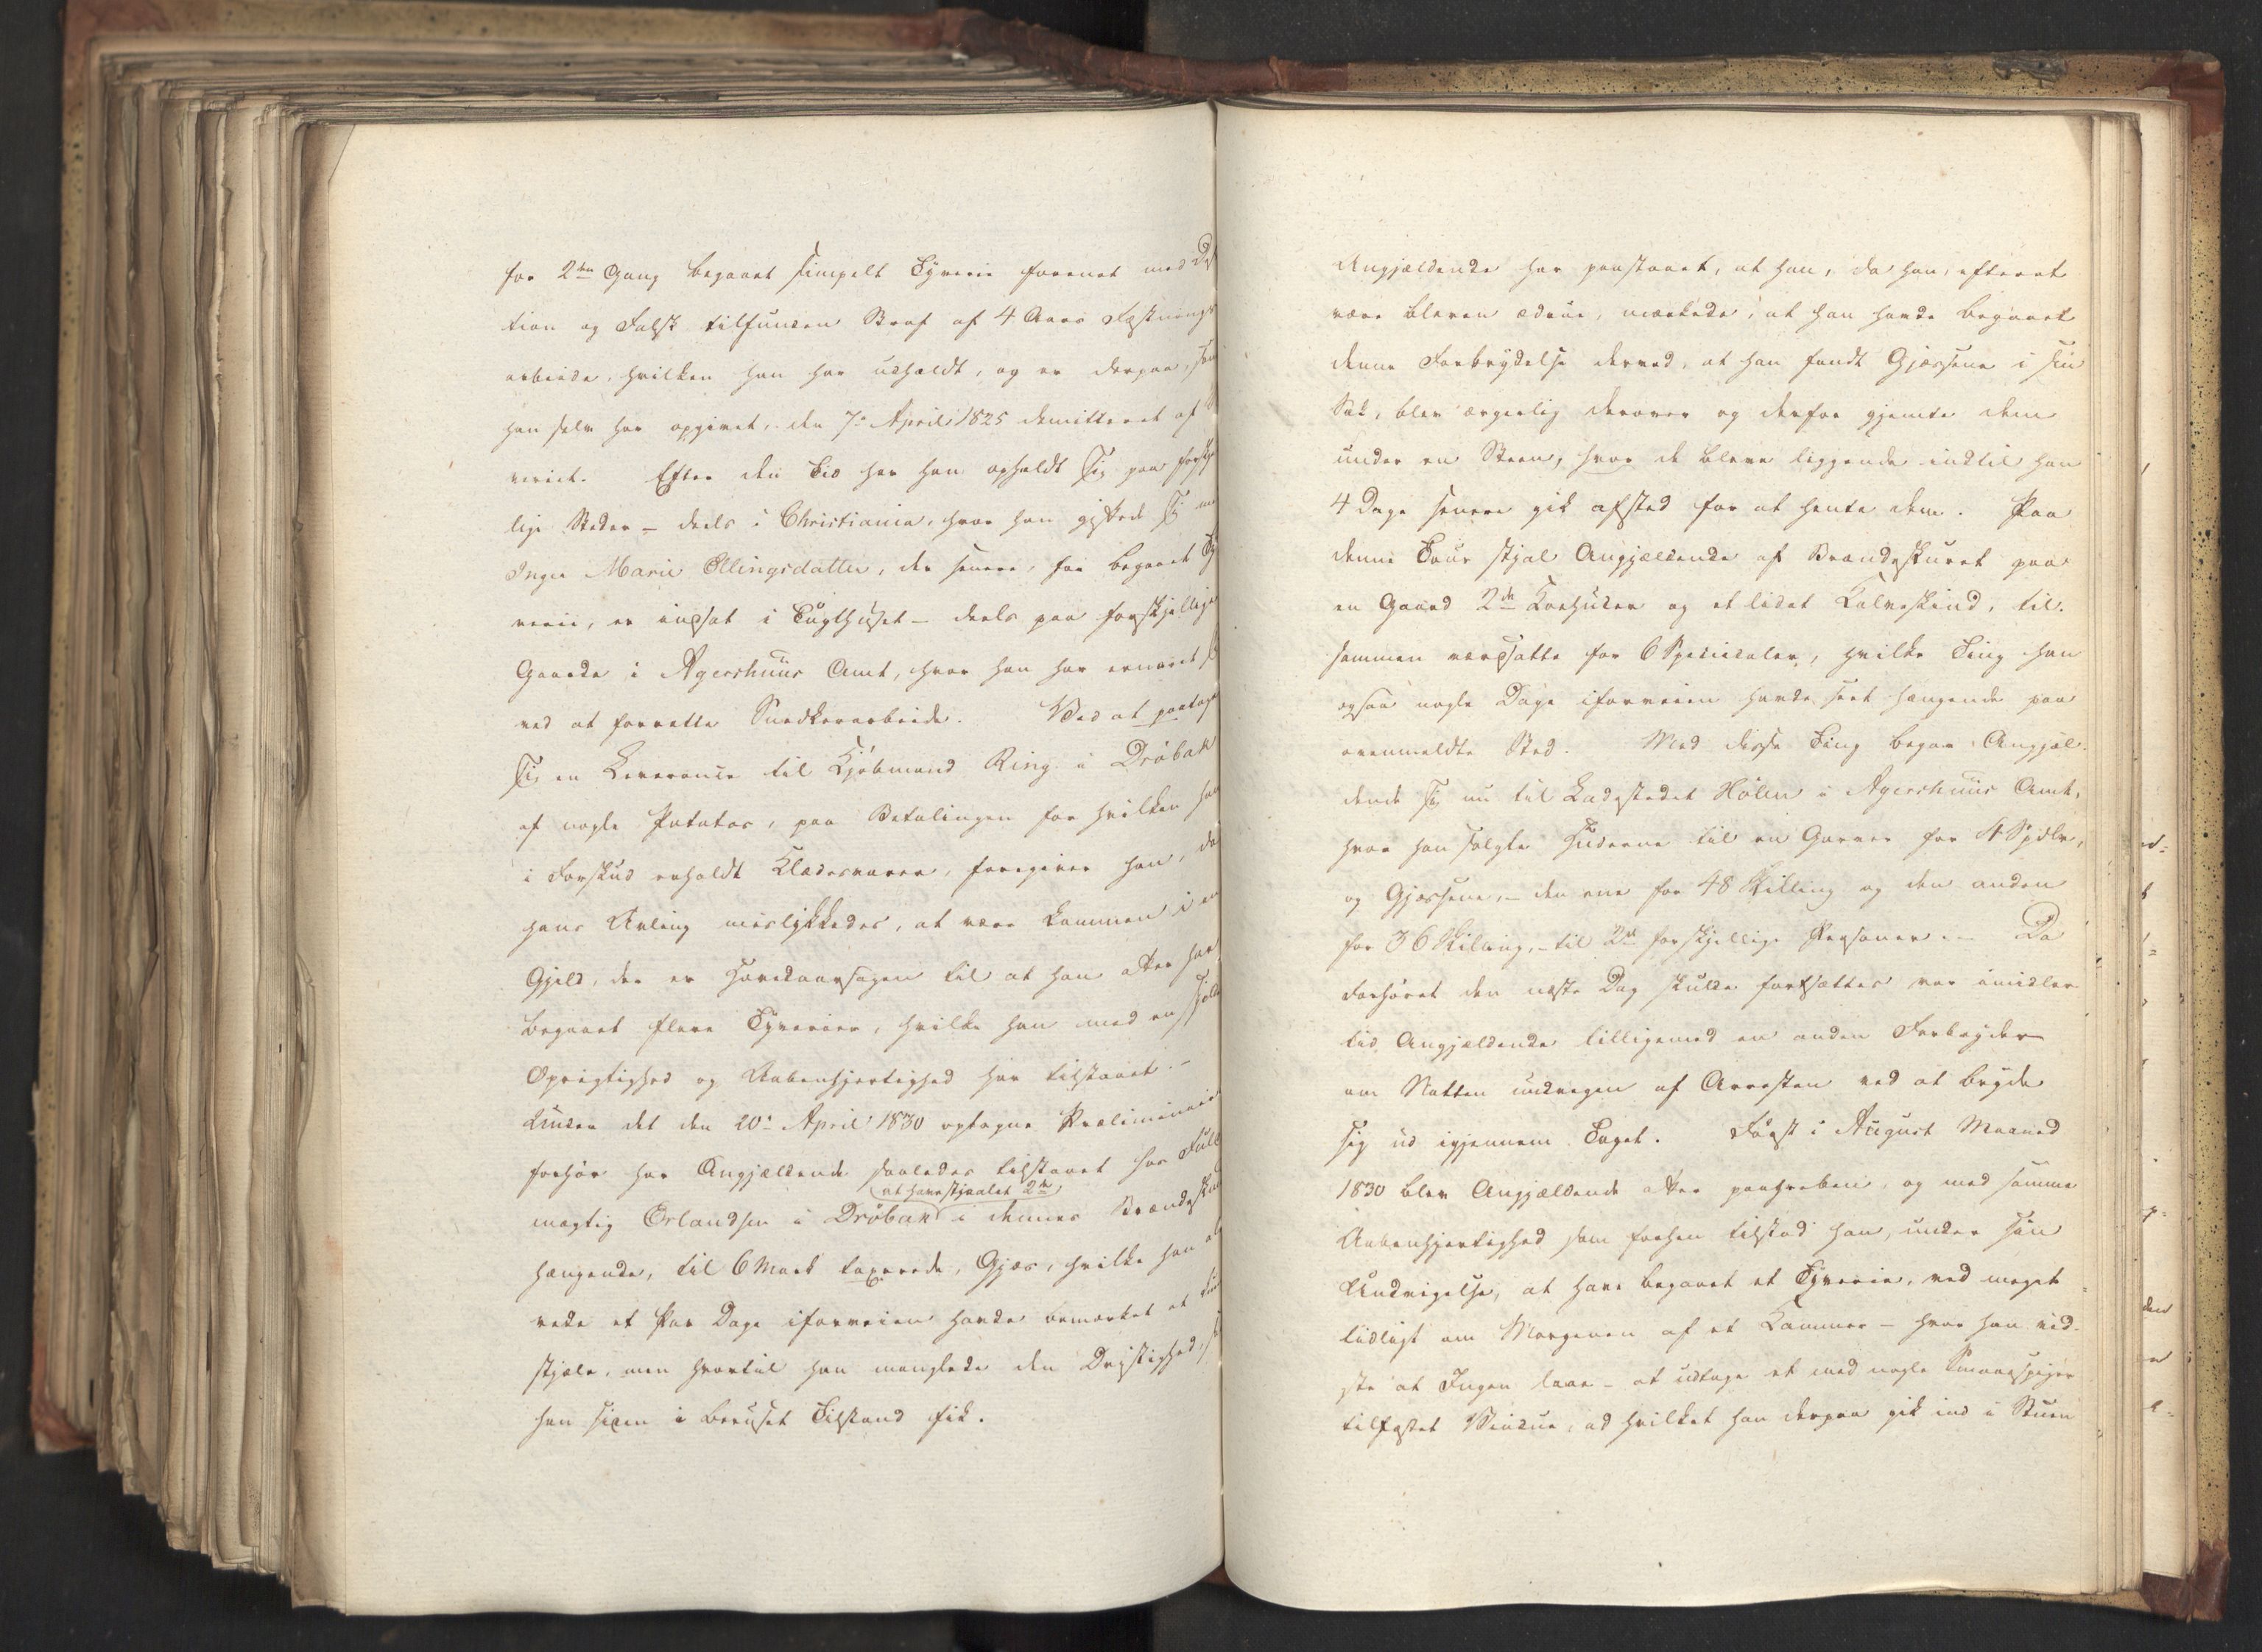 for 2den Gang begaaet simpelt Tyverie forenet med De
tion og Falsk tilfunden Straf af 4 Aars Fæstnings
arbeide, hvilken han har udholdt, og er derpaa, som
han selv har opgivet, den 7de April 1825 demitteret af
veriet. Efter den Tid har han opholdt sig paa forskje
lige Steder – deels i Christiania, hvor han giftede sig me
Inger Marie Ellingsdatter, der senere, for begaaet Ty
verie, er indsat i Tugthuset – deels paa forskjellige
Gaarde i Agershuus Amt, hvor han har ernæret s
ved at forrette Snedkerarbeide. Ved at paatage
sig en Leverance til Kjøbmand Ring i Drøbak
af nogle Potatos, paa Betalingen for hvilken han
i Forskud erholdt Klædesvarer, foregiver han, da
hans Avling mislykkedes, at være kommen i en
Gjeld, der er Hovedaarsagen til at han atter har
begaaet flere Tyverier, hvilke han med en sjelde
Oprigtighed og Aabenhjertighed har tilstaaet. –
Under det den 20de April 1830 optagne Præliminair
forhør har Angjældende saaledes tilstaaet hos Fuld
at have stjaalet 2de
mægtig Erlandsen i Drøbak i dennes Brændesku
hængende, til 6 Mark taxerede, Gjæs, hvilke han al
rede et Par Dage iforveien havde bemærket at kun
stjæle, men hvortil han manglede den Dristighed, s
han siden i beruset Tilstand fik.
Angjældende har paastaaet, at han, da han, efterat
være bleven ædrue, mærkede, at han havde begaaet
denne Forbrydelse derved, at han fandt Gjæssene i sin
Sæk, blev ærgerlig derover og derfor gjemte dem
under en Steen, hvor de bleve liggende indtil han
4 Dage senere gik afsted for at hente dem. Paa
denne Tour stjal Angjældende af Brændeskuret paa
en Gaard 2de Koehuder og et lidet Kalveskind, til-
sammen værdsatte for 6 Speciedaler, hvilke Ting han
ogsaa nogle Dage iforveien havde seet hængende paa
ovenmeldte Sted. Med disse Ting begav Angjæl-
dende sig nu til Ladestedet Hölen i Agershuus Amt,
hvor han solgte Huderne til en Garver for 4 Spdlr,
og Gjæssene, – den ene for 48 Skilling og den anden
for 36 Skilling, – til 2de forskjellige Personer. – Da
Forhøret den næste Dag skulde fortsættes var imidler
tid Angjældende tilligemed en anden Forbryder
om Natten undvegen af Arresten ved at bryde
sig ud igjennem Taget. Først i August Maaned
1830 blev Angjældende atter paagreben, og med samme
Aabenhjertighed som forhen tilstod han, under sin
Undvigelse, at have begaaet et Tyverie, ved meget
tidligt om Morgenen af et Kammer – hvor han vid-
ste at Ingen laae – at udtage et med nogle Smaaespiger
tilfæstet Vindue, ad hvilket han derpaa gik ind i Stuen